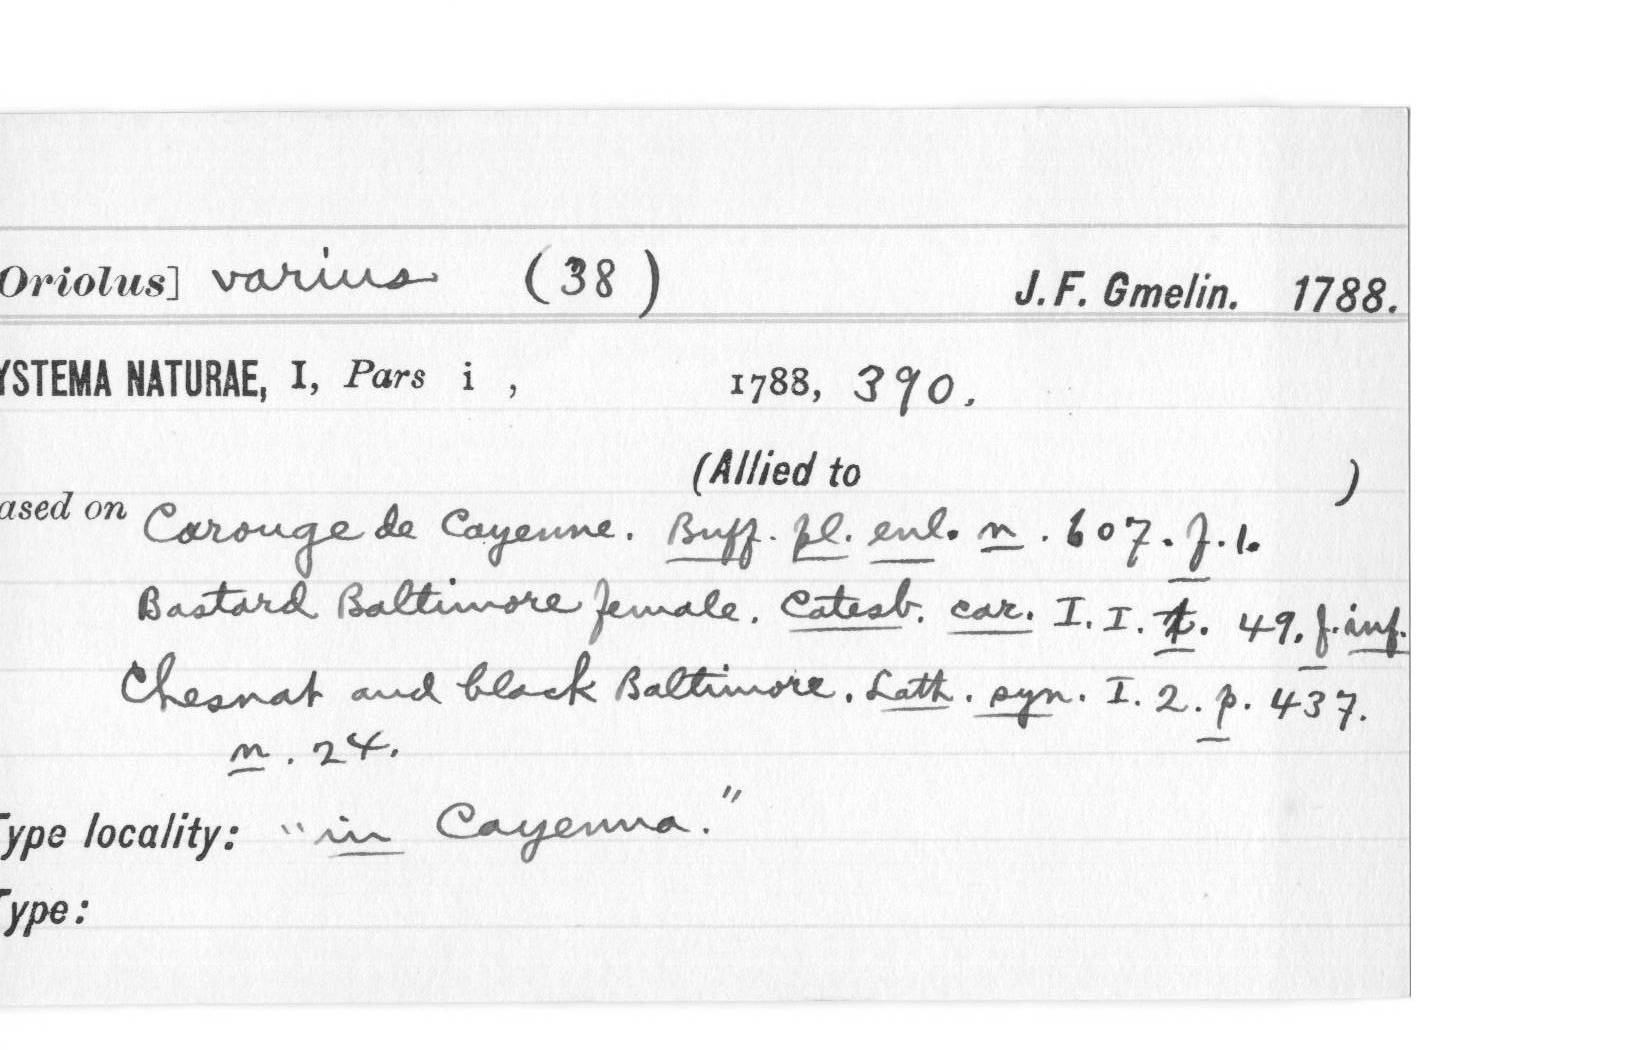 Oriolus] varius (38) J. F. Gmelin. 1788.
YSTEMA NATURAE, I, Pars i , 1788, 390.
(Allied to )
ased on Carouge de Cayenne. Buff. pl. enl. n. 607. f. 1.
Bastard Baltimore female. Catesb. car. I. I. t. 49. f. inf.
Chesnat and black Baltimore. Lath. syn. I. 2. p. 437.
n. 24.
Type locality: "in Cayenna."
Type: